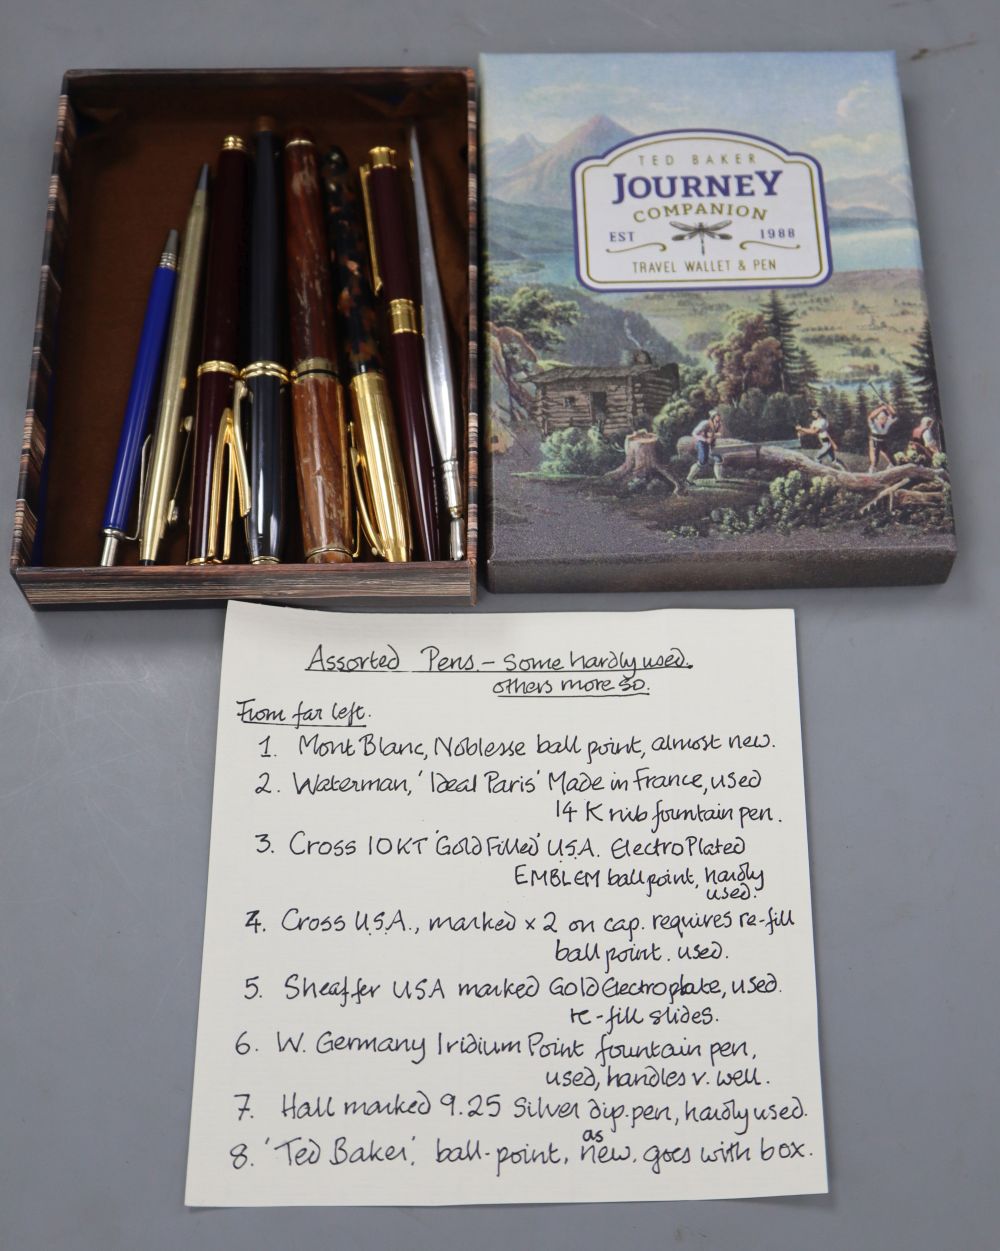 TED BAKER
JOURNEY
COMPANION
EST 1988
TRAVEL WALLET & PEN
Assorted Pens - some hardly used.
others more so.
From far left.
1. Mont Blanc, Noblesse ball point, almost new.
2. Waterman, 'Ideal Paris' Made in France, used
14 K nib fountain pen.
3. Cross 10KT 'Gold Filled' U.S.A. ElectroPlated
EMBLEM ballpoint, hardly
used.
4. Cross U.S.A., marked x 2 on cap. requires re-fill
ball point. used.
5. Sheaffer USA marked Gold Electroplate, used.
re-fill slides.
6. W. Germany Iridium Point fountain pen,
used, handles v. well.
7. Hall marked 9.25 Silver dip-pen, hardly used.
as
8. 'Ted Baker'. ball-point, new. goes with box.